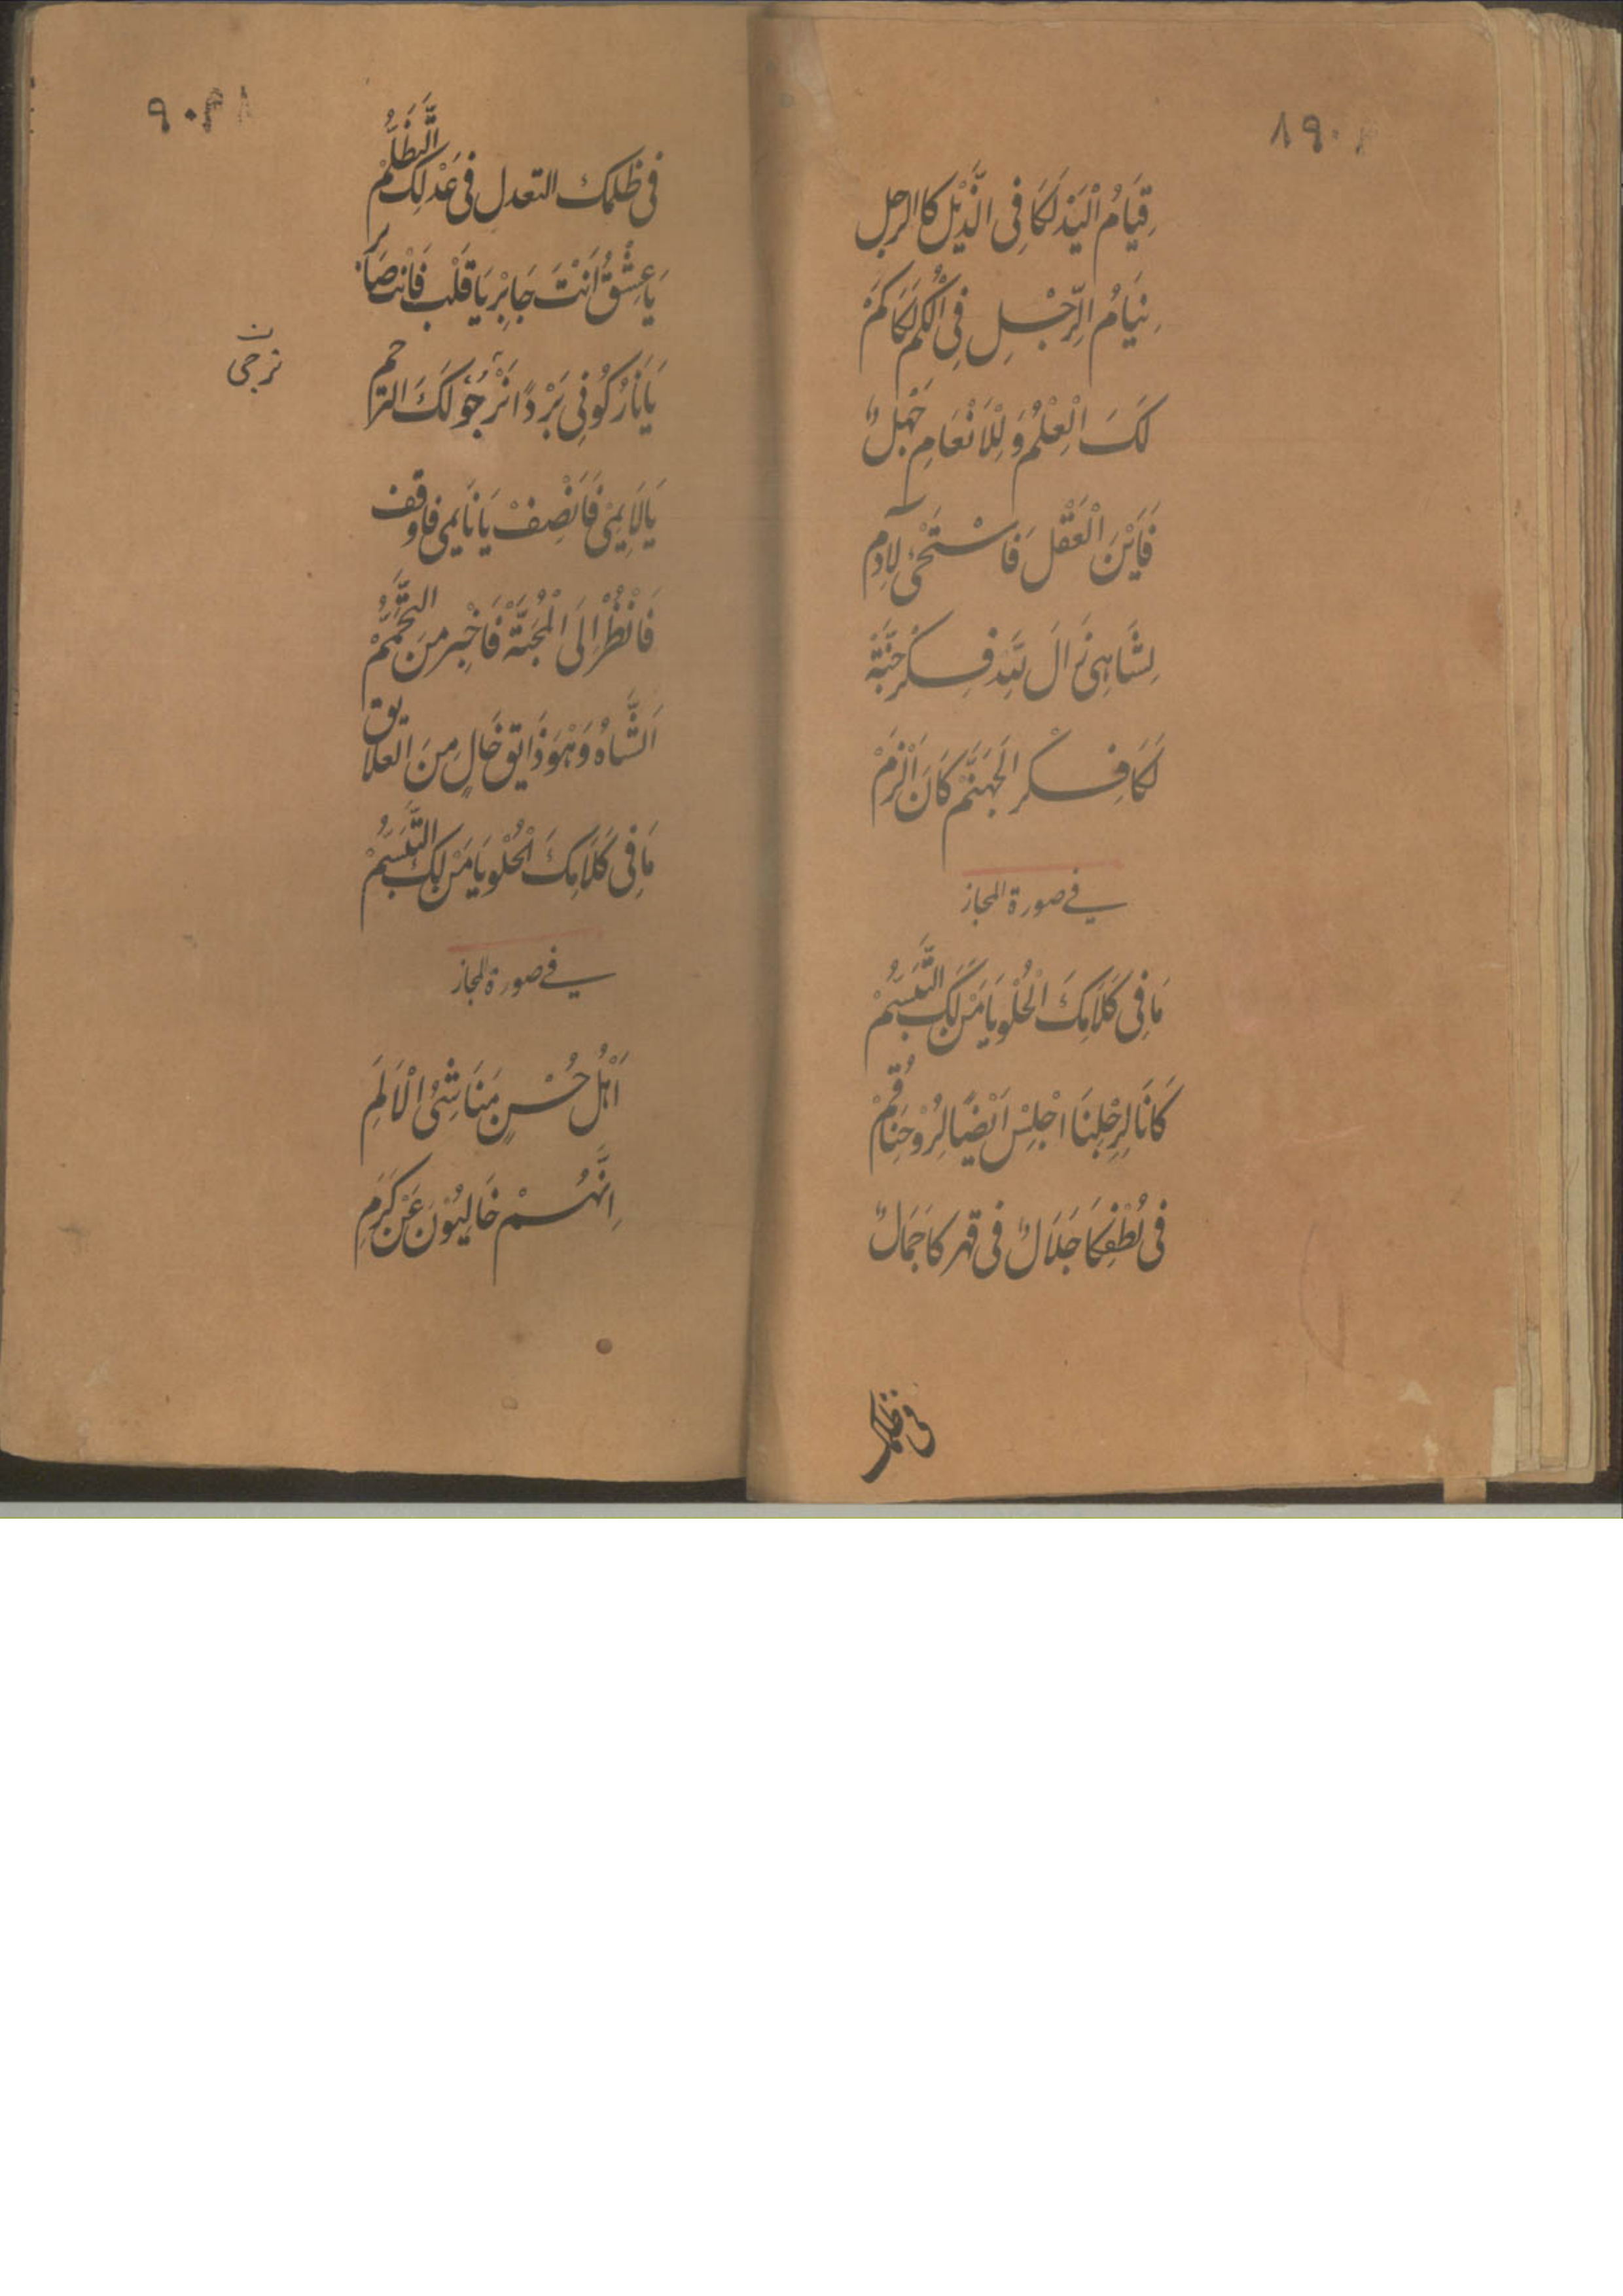 قِيَامُ الْيَدْ لَكَا فِى الذَّيْل كا الرجل
نِيَامُ الرِّجْلِ فِى الْكُمْ لَكَا كَمْ
لَكَ الْعِلْمُ وَ لِلْاَنْعَامِ جَهْلٌ
فَاَيْنَ الْعَقْل فَاسْتَحْىِ لِآدم
لِشَاهِىْ نَرَالَ فِكْر جَنَّة
لَكَا فِكر الجَهَنَّمْ كَانَ اَلْزَمْ
فے صورة المجاز
مَا فِى كَلَامِكَ الْحُلْو يَا مَنْ لَبِكَ التَّبَسُّمْ
كَانَا لِرِجْلِنَا اجْلِسْ اَيْضًا لِرُوْحِنَا قُمْ
فى لُطْفِكَا جَلَالٌ فى قهركا جَمَالٌ
فى ظلمك
فى ظلمك التعدل فى عَدْلِك التَّظَلُّمْ
يَا عِشْقُ اَنْتَ جَابِرْ يَا قَلْب فَانْت صَابر
يَا نَارُ كُوْنِى بَرْدًا نَرْجُوْ لَكَ التراحم
نرجى
يَا لَايِمِىْ فَاَنْصِفْ يَا نَايمى فاوقف
فَانْظُرْ اِلَى الْمُحَبَّةْ فَاخْبِر مِنَ
اَلشَّاهُ وَهْوَ ذَايق خَالٍ مِنَ العلايق
مَا فِى كَلَامِكَ الْحُلْو يَا مَنْ لَبِكَ التَّبَسُّمْ
فے صورة المجاز
اَهْلُ حُسْنٍ مَنَاشِئُ الْاَلَمِ
اِنَّهُمْ خَالِيُوْنَ عَنْ كَرَمِ